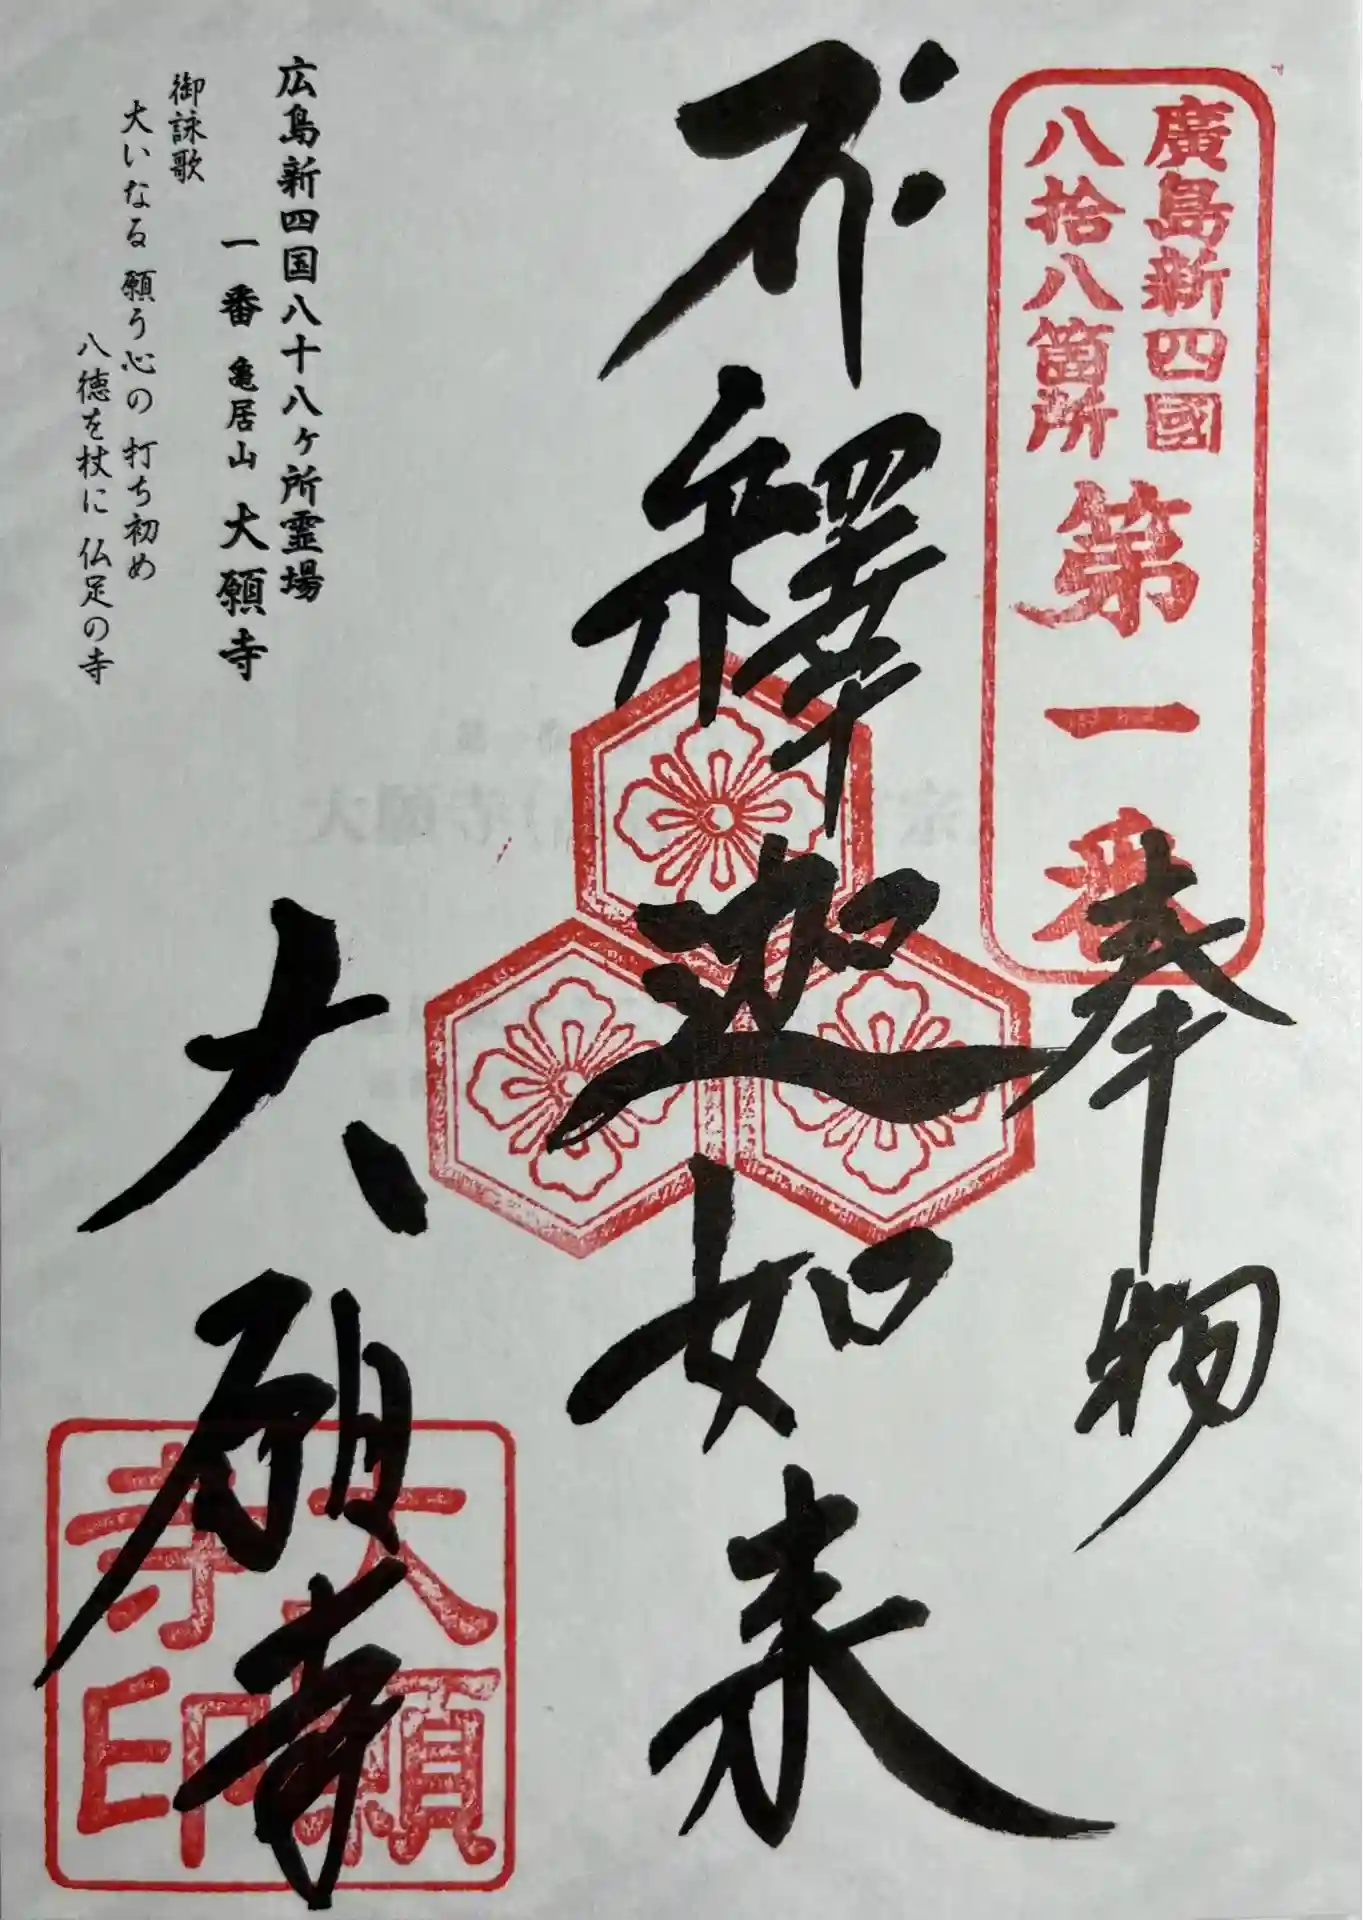 廣島新四國
八拾八箇所
第一番
奉拝
釋迦如来
大願寺
大願
寺印
広島新四国八十八ヶ所霊場
一番 亀居山 大願寺
御詠歌
大いなる 願う心の 打ち初め
八徳を杖に 仏足の寺